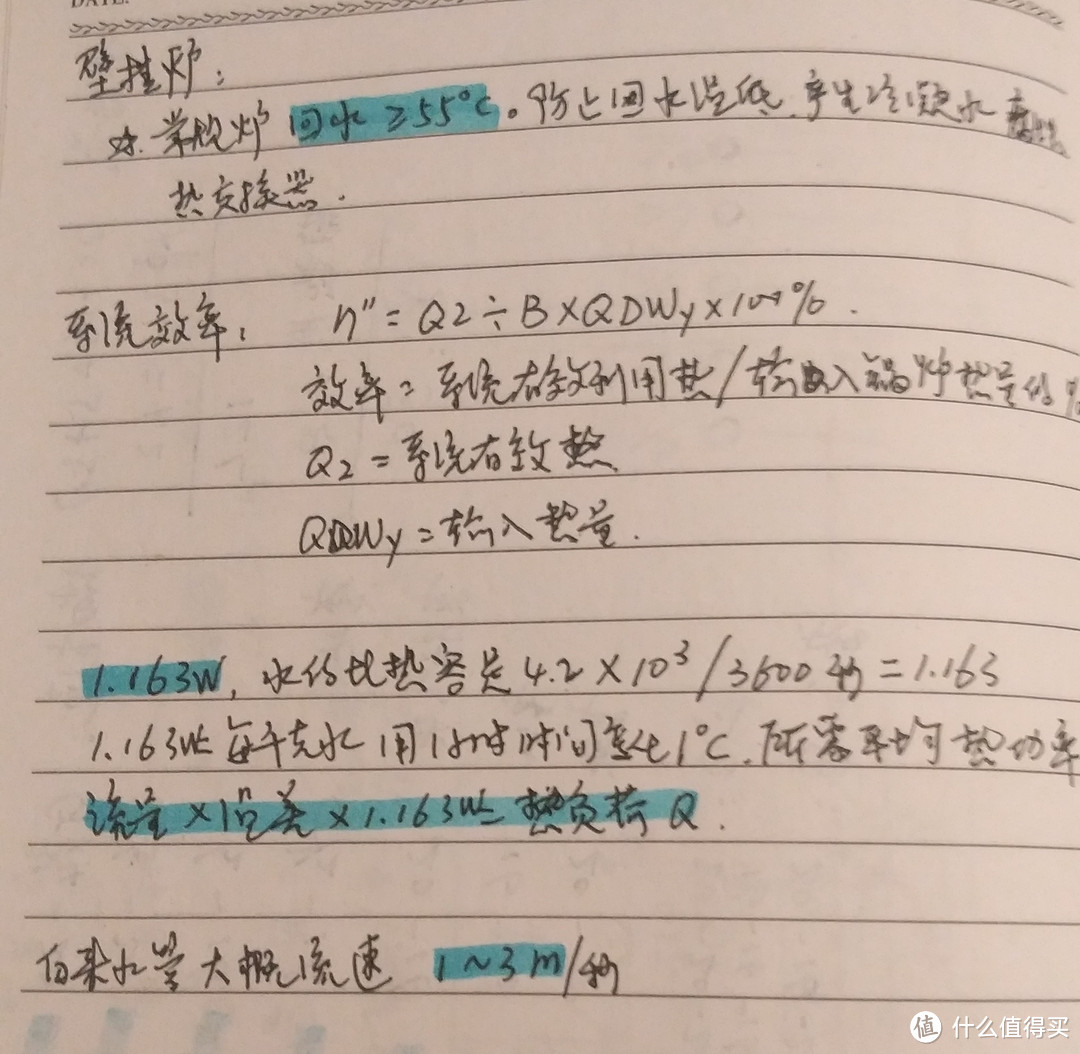 DATE.
壁挂炉:
☆.常规炉 回水≥55℃。防止回水温低.产生冷凝水 腐蚀
热交换器.
系统效率: η"=Q2÷B×QDWy×100%.
效率=系统有效利用热/输入锅炉热量的%
Q2=系统有效热
QDWy=输入热量.
1.163W, 水的比热容是4.2×10³/3600秒=1.163
1.163W是每千克水用1小时时间变化1℃.所需平均热功率
流量×温差×1.163W是 热负荷Q.
自来水管大概流速 1~3m/秒
值 什么值得买